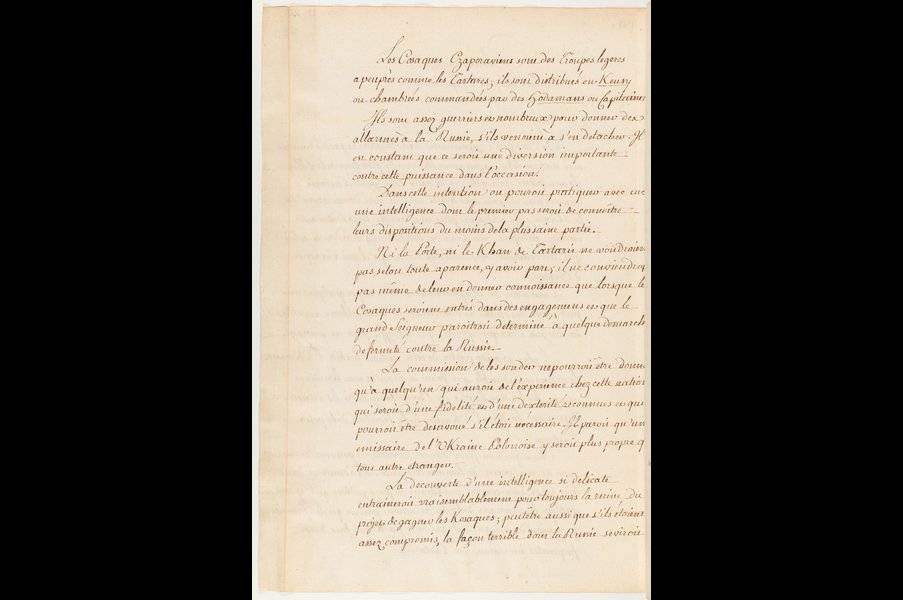 Les Cosaques Czaporaviens sont des Troupes legeres
a peuprès comme les Tartares; ils sont distribués en Keusy
ou chambrés commandées par des Hodamans ou Capitaines
Ils sont assez guerriers et nombreux pour donner des
allarmes à la Russie, s'ils venoient à s'en detacher. Il
est constant que ce seroit une diversion importante
contre cette puissance dans l'occasion.
Dans cette intention on pouroit pratiquer avec eux
une intelligence dont le premier pas seroit de connoître
leurs dispositions du moins de la plus saine partie.
Ni la Porte, ni le Khan de Tartarie ne voudroient
pas selon toute aparence, y avoir part; il ne conviendroit
pas même de leur en donner connoissance que lorsque les
Cosaques seroient entrés dans des engagemens et que le
grand Seigneur paroitroit determiné à quelque demarche
de fermeté contre la Russie.
La commission de les sonder ne pourroit être donné
qu'à quelqu'un qui auroit de l'experience chez cette nation
qui seroit d'une fidelité et d'une dexterité reconnues et qui
pourroit être desavoué s'il étoit necessaire. Il paroit qu'un
emissaire de l'Ukraine Polonoise y seroit plus propre q
tout autre etranger.
La decouverte d'une intelligence si delicate
entraineroit vraisemblablement pour toujours la ruine du
projet de gagner les Kosaques; peutêtre aussi que s'ils etoient
assez compromis, la façon terrible dont la Russie seviroit